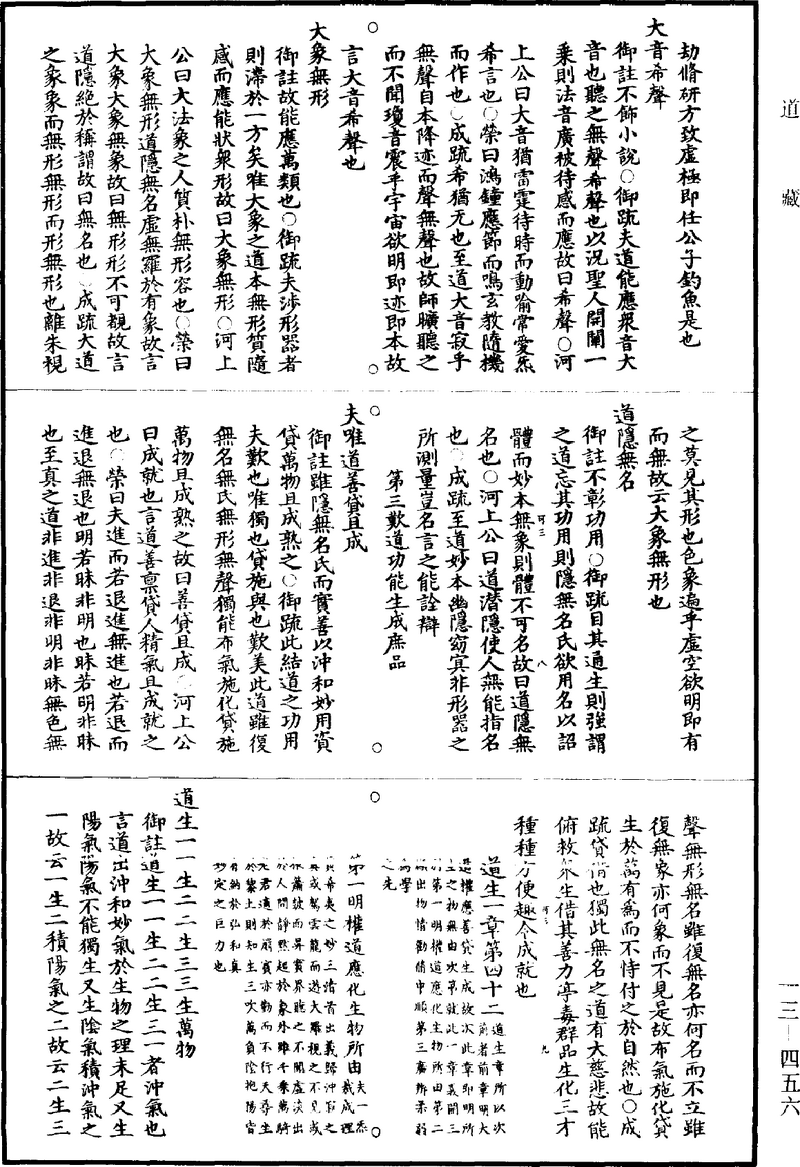 道藏
劫脩研方致虛極即任公子釣魚是也
大音希聲
御註不飾小說○御疏夫道能應衆音大
音也聽之無聲希聲也以況聖人開闡一
乗則法音廣被待感而應故曰希聲○河
上公曰大音猶雷霆待時而動喻常愛炁
希言也○榮曰鴻鐘應節而鳴玄教隨機
而作也○成疏希猶无也至道大音寂乎
無聲自本降迹而聲無聲也故師曠聽之
而不聞瓊音震乎宇宙欲明即迹即本故
言大音希聲也
大象無形
御註故能應萬類也○御疏夫涉形器者
則滯於一方矣唯大象之道本無形質隨
感而應能狀衆形故曰大象無形○河上
公曰大法象之人質朴無形容也○榮曰
大象無形道隱無名虛無羅於有象故言
大象大象無象故曰無形形不可覩故言
道隱絕於稱謂故曰無名也○成疏大道
之象象而無形無形而形無形也離朱視
之莫見其形也色象遍乎虛空欲明即有
而無故云大象無形也
道隱無名
御註不彰功用○御疏目其通生則強謂
之道忘其功用則隱無名氏欲用名以詔
體而妙本無象則體不可名故曰道隱無
名也○河上公曰道潛隱使人無能指名
也○成疏至道妙本幽隱窈冥非形器之
所測量豈名言之能詮辯
第三歎道功能生成庶品
夫唯道善貸且成
御註雖隱無名氏而實善以沖和妙用資
貸萬物且成熟之○御疏此結道之功用
夫歎也唯獨也貸施與也歎美此道雖復
無名無氏無形無聲獨能布氣施化貸施
萬物且成熟之故曰善貸且成○河上公
曰成就也言道善稟貸人精氣且成就之
也○榮曰夫進而若退進無進也若退而
進退無退也明若昧非明也昧若明非昧
也至真之道非進非退非明非昧無色無
聲無形無名雖復無名亦何名而不立雖
復無象亦何象而不見是故布氣施化貸
生於萬有爲而不恃付之於自然也○成
疏貸借也獨此無名之道有大慈悲故能
俯救衆生借其善力亭毒群品生化三才
種種方便趣令成就也
道生一章第四十二道生章所以次
前者前章明大
道權應善貸生成故次此章即明所
生之物無由次第就此一章義開三
別第一明權道應化生物所由第二
顯出物情勸修中順第三廣辯柔弱
爲學
之先
第一明權道應化生物所由夫一炁
裁成理
貫希夷之妙三清首出義歸沖寂之
真或駕雲龍而遊大羅視之不見或
於人間靜然起於象外雖千乗萬騎
於黎土則知生三吹萬負陰抱陽皆
妙定之巨力也
道生一一生二二生三三生萬物
御註道生一一生二二生三一者沖氣也
言道出沖和妙氣於生物之理未足又生
陽氣陽氣不能獨生又生陰氣積沖氣之
一故云一生二積陽氣之二故云二生三
一三─四五六